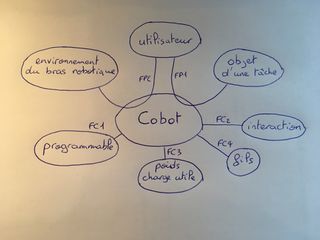 utilisateur
environnement
du bras robotique
objet
d'une tâche
FP2
FP1
Cobot
FC1
programmable
FC2
interaction
FC3
poids
charge utile
FC4